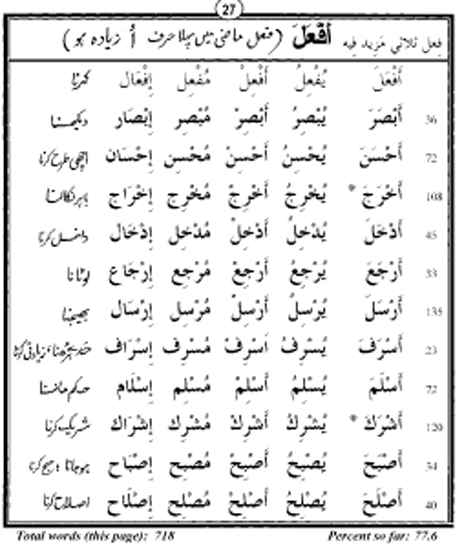 27
فعل ثلاثي مَزِيد فيه أَفْعَلَ (فعل ماضی میں پہلا حرف أ زیادہ ہو)
أَفْعَلَ يُفْعِلُ أَفْعِلْ مُفْعِل إِفْعَال کرنا
36 أَبْصَرَ يُبْصِرُ أَبْصِرْ مُبْصِر إِبْصَار دیکھنا
72 أَحْسَنَ يُحْسِنُ أَحْسِنْ مُحْسِن إِحْسَان اچھی طرح کرنا
108 أَخْرَجَ * يُخْرِجُ أَخْرِجْ مُخْرِج إِخْرَاج باہر نکالنا
45 أَدْخَلَ يُدْخِلُ أَدْخِلْ مُدْخِل إِدْخَال داخل کرنا
33 أَرْجَعَ يُرْجِعُ أَرْجِعْ مُرْجِع إِرْجَاع لوٹانا
135 أَرْسَلَ يُرْسِلُ أَرْسِلْ مُرْسِل إِرْسَال بھیجنا
23 أَسْرَفَ يُسْرِفُ أَسْرِفْ مُسْرِف إِسْرَاف حد سے بڑھنا، زیادتی کرنا
72 أَسْلَمَ يُسْلِمُ أَسْلِمْ مُسْلِم إِسْلَام حکم ماننا
120 أَشْرَكَ * يُشْرِكُ أَشْرِكْ مُشْرِك إِشْرَاك شریک کرنا
34 أَصْبَحَ يُصْبِحُ أَصْبِحْ مُصْبِح إِصْبَاح ہو جانا، صبح کرنا
40 أَصْلَحَ يُصْلِحُ أَصْلِحْ مُصْلِح إِصْلَاح اصلاح کرنا
Total words (this page): 718 Percent so far: 77.6